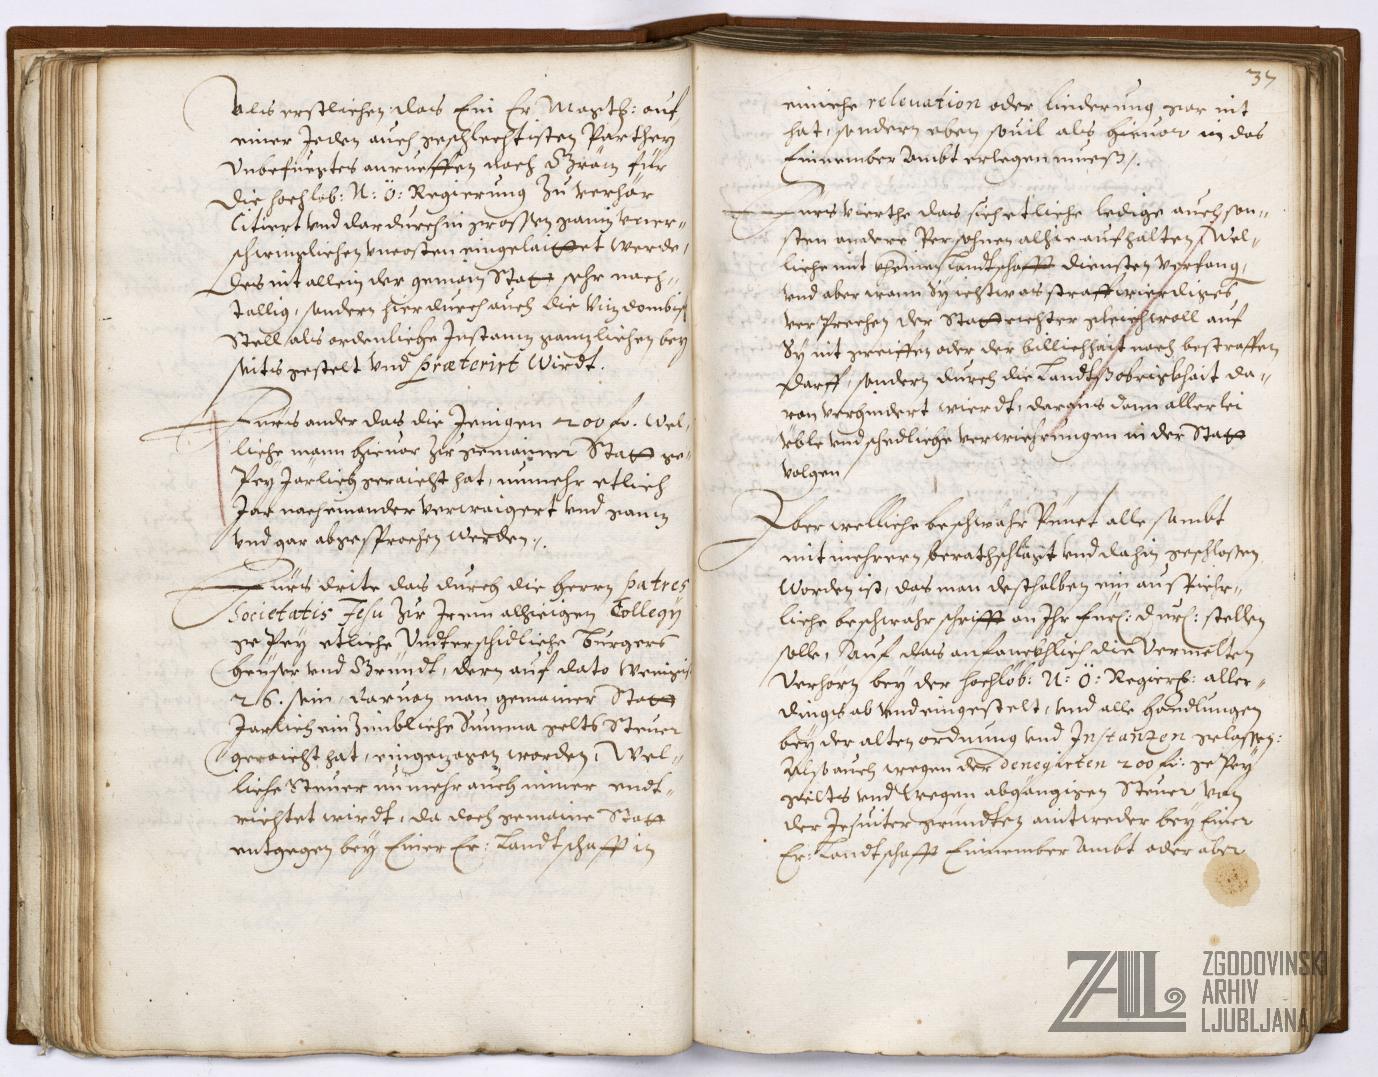 Als erstlichen das Ein Er: Magist: auf
einer Jeden auch geschlechtisten Parthey
Unbefuegtes anrueffen nach Gräz für
die hochlob: N: Ö: Regierung zu verhör
Citiert und dardurch in grossen ganz
schimpflichen uncosten eingelaittet werde,
des nit allein der gemain Statt sehr nach-
taillig, sondern hierdurch auch die Vizdombisch
Stell als ordenliche Instantz gantzlichen bey
seits gestelt und præterirt wirdt.
Fürs ander das die Jenigen 200 fl. wel-
liche mann hieuor zur gemainer Statt ge-
Pey Jarlich geraicht hat, nunmehr etlich
Jar nacheinander verwaigert und gantz
und gar abgesprochen werden.
Fürs drite das durch die Herrn patres
Societatis Jesu zur Irem alhieigen Collegy
gePey etliche Underschidliche Burgers
heuser und Gründt, dern auf dato wenigist
26. sein, daruon man gemainer Statt
Jarlich ein Zimbliche Summa gelts Steuer
geraicht hat, eingezogen worden, Wel-
liche Steuer nunmehr auch nimer endt-
richtet wirdt, da doch gemaine Statt
entgegen bey Einer Er: Landtschafft in
37
einiche releuation oder linderung gar nit
hat, sondern eben souil als hieuor in das
Einnember Ambt erlegen muess.
Fürs vierthe das sich etliche ledige auch son-
sten andere Persohnen alhie aufhalten, Wel-
liche mit Landtschafft diensten verfang,
und aber wann Sy ichtwas straffwierdiges
verPrechen der Stattrichter gleichwoll auf
Sy nit greiffen oder der billichhait nach bestraffen
darff, sondern durch die Landtsobrigkhait da-
ran verhindert wierdt, daraus dann allerlei
üble und schedliche verwiehrungen in der Statt
volgen
Über welliche beschwahr Punct alle sambt
mit mehrern berathschlagt und dahin geschlossen
worden ist, das man desthalben ein ausfiehr-
liche beschwahr schrifft an Ihr Fürs: Durl: stellen
solle, Auf das anfanckhlich die vermelten
verhorn bey der hochlob: N: Ö: Regierg: aller-
dings ab und eingestelt, und alle handlungen
bey der alten ordnung und Instanzen gelassen:
Also auch wegen der denegirten 200 fl: gePey
gelts und wegen abgangigen Steuer von
der Jesuiter gründten aintweder bey Einer
Er: Landtschafft Einnember Ambt oder aber
ZAL
ZGODOVINSKI
ARHIV
LJUBLJANA